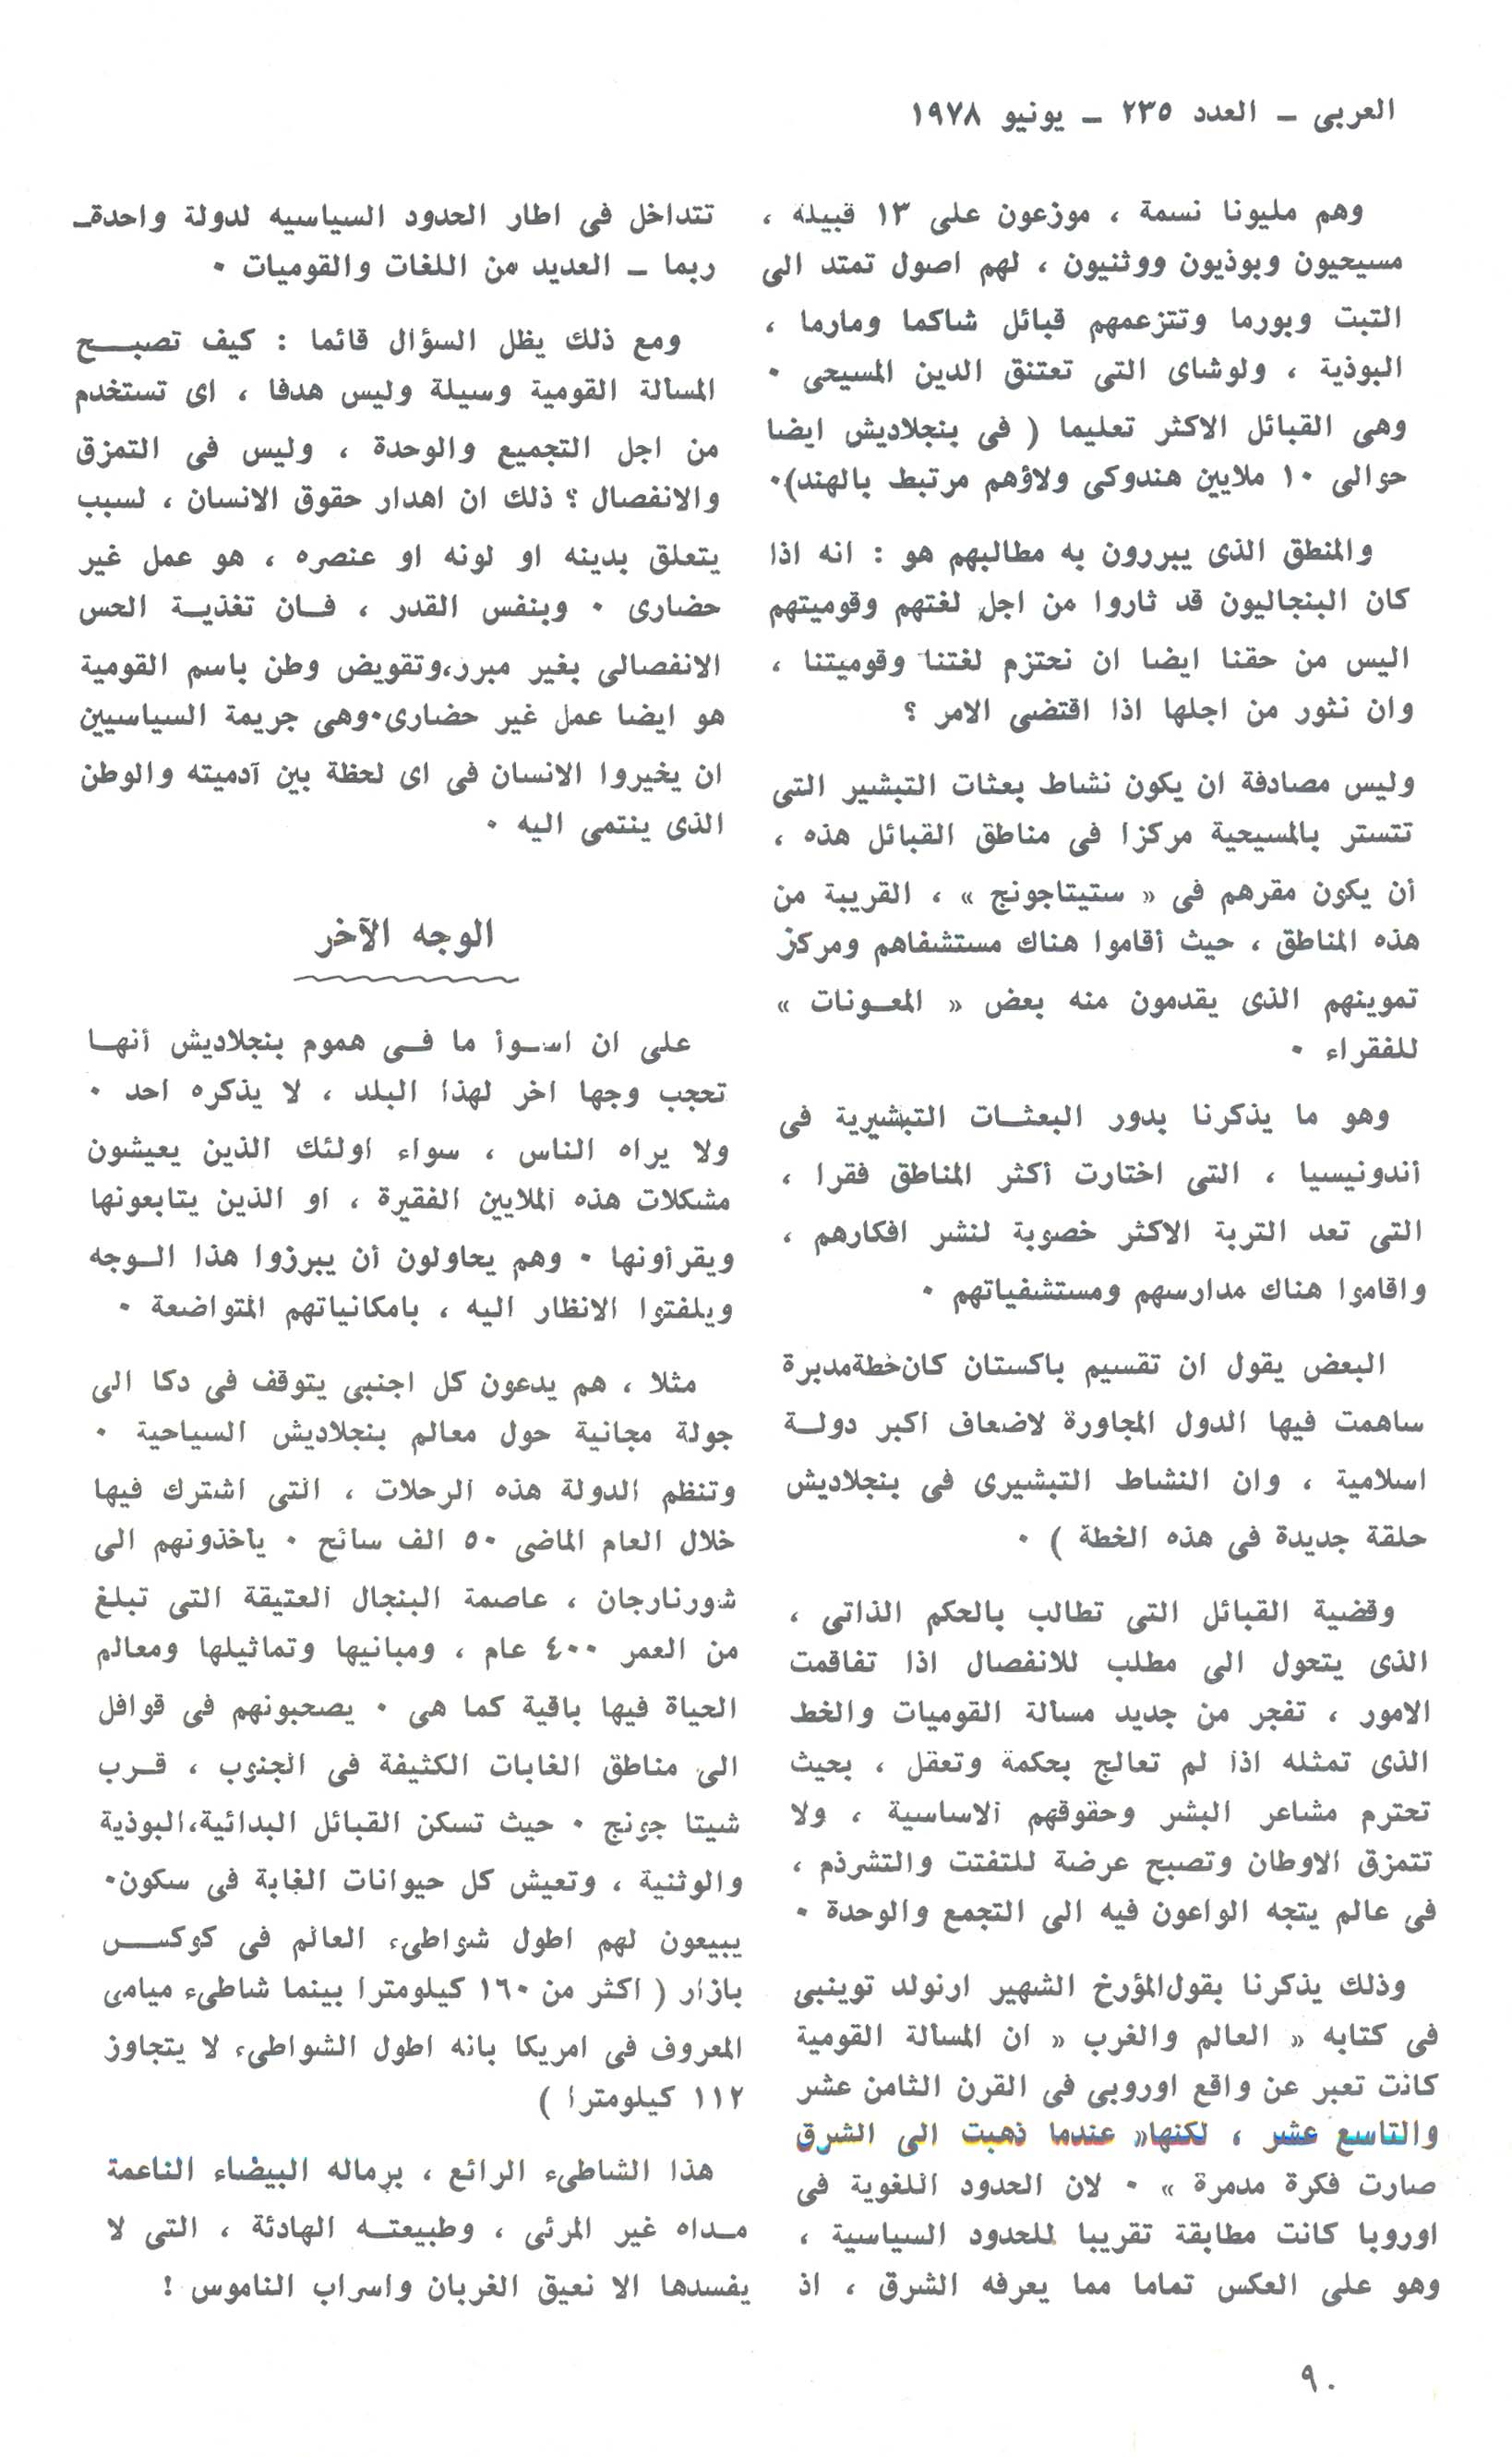 العربى – العدد ٢٣٥ – يونيو ١٩٧٨
وهم مليونا نسمة ، موزعون على ١٣ قبيلة ،
مسيحيون وبوذيون ووثنيون ، لهم اصول تمتد الى
التبت وبورما وتتزعمهم قبائل شاكما ومارما ،
البوذية ، ولوشاى التى تعتنق الدين المسيحى ٠
وهى القبائل الاكثر تعليما ( فى بنجلاديش ايضا
حوالى ١٠ ملايين هندوكى ولاؤهم مرتبط بالهند)٠
والمنطق الذى يبررون به مطالبهم هو : انه اذا
كان البنجاليون قد ثاروا من اجل لغتهم وقوميتهم
اليس من حقنا ايضا ان نحتزم لغتنا وقوميتنا ،
وان نثور من اجلها اذا اقتضى الامر ؟
وليس مصادفة ان يكون نشاط بعثات التبشير التى
تتستر بالمسيحية مركزا فى مناطق القبائل هذه ،
أن يكون مقرهم فى « ستيتاجونج » ، القريبة من
هذه المناطق ، حيث أقاموا هناك مستشفاهم ومركز
تموينهم الذى يقدمون منه بعض « المعونات »
للفقراء ٠
وهو ما يذكرنا بدور البعثات التبشيرية فى
أندونيسيا ، التى اختارت أكثر المناطق فقرا ،
التى تعد التربة الاكثر خصوبة لنشر افكارهم ،
واقاموا هناك مدارسهم ومستشفياتهم ٠
البعض يقول ان تقسيم باكستان كان خطة مدبرة
ساهمت فيها الدول المجاورة لاضعاف اكبر دولة
اسلامية ، وان النشاط التبشيرى فى بنجلاديش
حلقة جديدة فى هذه الخطة ) ٠
وقضية القبائل التى تطالب بالحكم الذاتى ،
الذى يتحول الى مطلب للانفصال اذا تفاقمت
الامور ، تفجر من جديد مسألة القوميات والخط
الذى تمثله اذا لم تعالج بحكمة وتعقل ، بحيث
تحترم مشاعر البشر وحقوقهم الاساسية ، ولا
تتمزق الاوطان وتصبح عرضة للتفتت والتشرذم ،
فى عالم يتجه الواعون فيه الى التجمع والوحدة ٠
وذلك يذكرنا بقول المؤرخ الشهير ارنولد توينبى
فى كتابه « العالم والغرب « ان المسألة القومية
كانت تعبر عن واقع اوروبى فى القرن الثامن عشر
والتاسع عشر ، لكنها« عندما ذهبت الى الشرق
صارت فكرة مدمرة » ٠ لان الحدود اللغوية فى
اوروبا كانت مطابقة تقريبا للحدود السياسية ،
وهو على العكس تماما مما يعرفه الشرق ، اذ
تتداخل فى اطار الحدود السياسيه لدولة واحدة–
ربما – العديد من اللغات والقوميات ٠
ومع ذلك يظل السؤال قائما : كيف تصبح
المسالة القومية وسيلة وليس هدفا ، اى تستخدم
من اجل التجميع والوحدة ، وليس فى التمزق
والانفصال ؟ ذلك ان اهدار حقوق الانسان ، لسبب
يتعلق بدينه او لونه او عنصره ، هو عمل غير
حضارى ٠ وبنفس القدر ، فان تغذية الحس
الانفصالى بغير مبرر،وتقويض وطن باسم القومية
هو ايضا عمل غير حضارى٠وهى جريمة السياسيين
ان يخيروا الانسان فى اى لحظة بين آدميته والوطن
الذى ينتمى اليه ٠
الوجه الآخر
على ان اسوأ ما فى هموم بنجلاديش أنها
تحجب وجها اخر لهذا البلد ، لا يذكره احد ٠
ولا يراه الناس ، سواء اولئك الذين يعيشون
مشكلات هذه الملايين الفقيرة ، او الذين يتابعونها
ويقرأونها ٠ وهم يحاولون أن يبرزوا هذا الوجه
ويلفتوا الانظار اليه ، بامكانياتهم المتواضعة ٠
مثلا ، هم يدعون كل اجنبى يتوقف فى دكا الى
جولة مجانية حول معالم بنجلاديش السياحية ٠
وتنظم الدولة هذه الرحلات ، التى اشترك فيها
خلال العام الماضى ٥٠ الف سائح ٠ يأخذونهم الى
شورنارجان ، عاصمة البنجال العتيقة التى تبلغ
من العمر ٤٠٠ عام ، ومبانيها وتماثيلها ومعالم
الحياة فيها باقية كما هى ٠ يصحبونهم فى قوافل
الى مناطق الغابات الكثيفة فى الجنوب ، قرب
شيتا جونج ٠ حيث تسكن القبائل البدائية،البوذية
والوثنية ، وتعيش كل حيوانات الغابة فى سكون٠
يبيعون لهم اطول شواطىء العالم فى كوكس
بازار ( اكثر من ١٦٠ كيلومترا بينما شاطىء ميامى
المعروف فى امريكا بانه اطول الشواطىء لا يتجاوز
١١٢ كيلومترا )
هذا الشاطىء الرائع ، برماله البيضاء الناعمة
مداه غير المرئى ، وطبيعته الهادئة ، التى لا
يفسدها الا نعيق الغربان واسراب الناموس !
٩٠